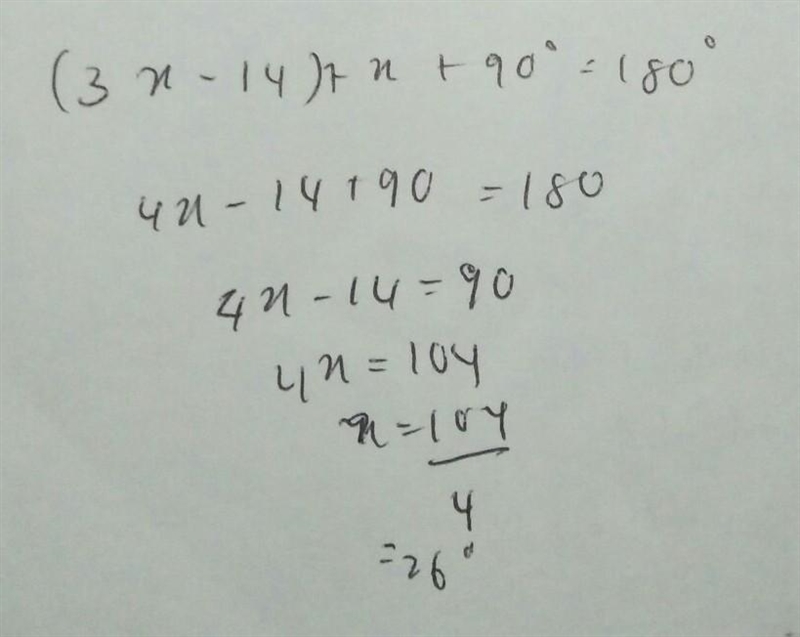 (3x - 14) + x + 90° = 180°
4x - 14 + 90 = 180
4x - 14 = 90
4x = 104
x = 104
4
= 26°